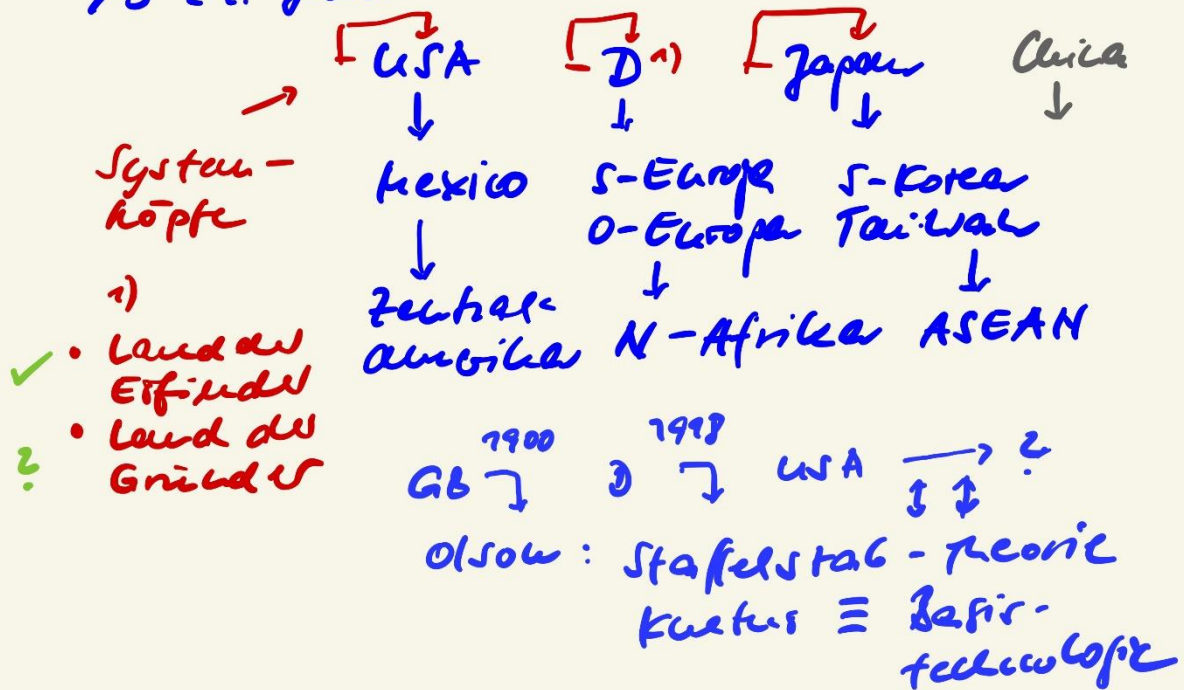 USA D 1) Japan China
System-
köpfe
Mexico S-Europa S-Korea
O-Europa Taiwan
Zentral-
amerika N-Afrika ASEAN
1)
• Land der
Erfinder
• Land der
Gründer
?
GB 1900 D 1918 USA ?
Olson: Staffelstab-Theorie
Kultur ≡ Basis-
technologie